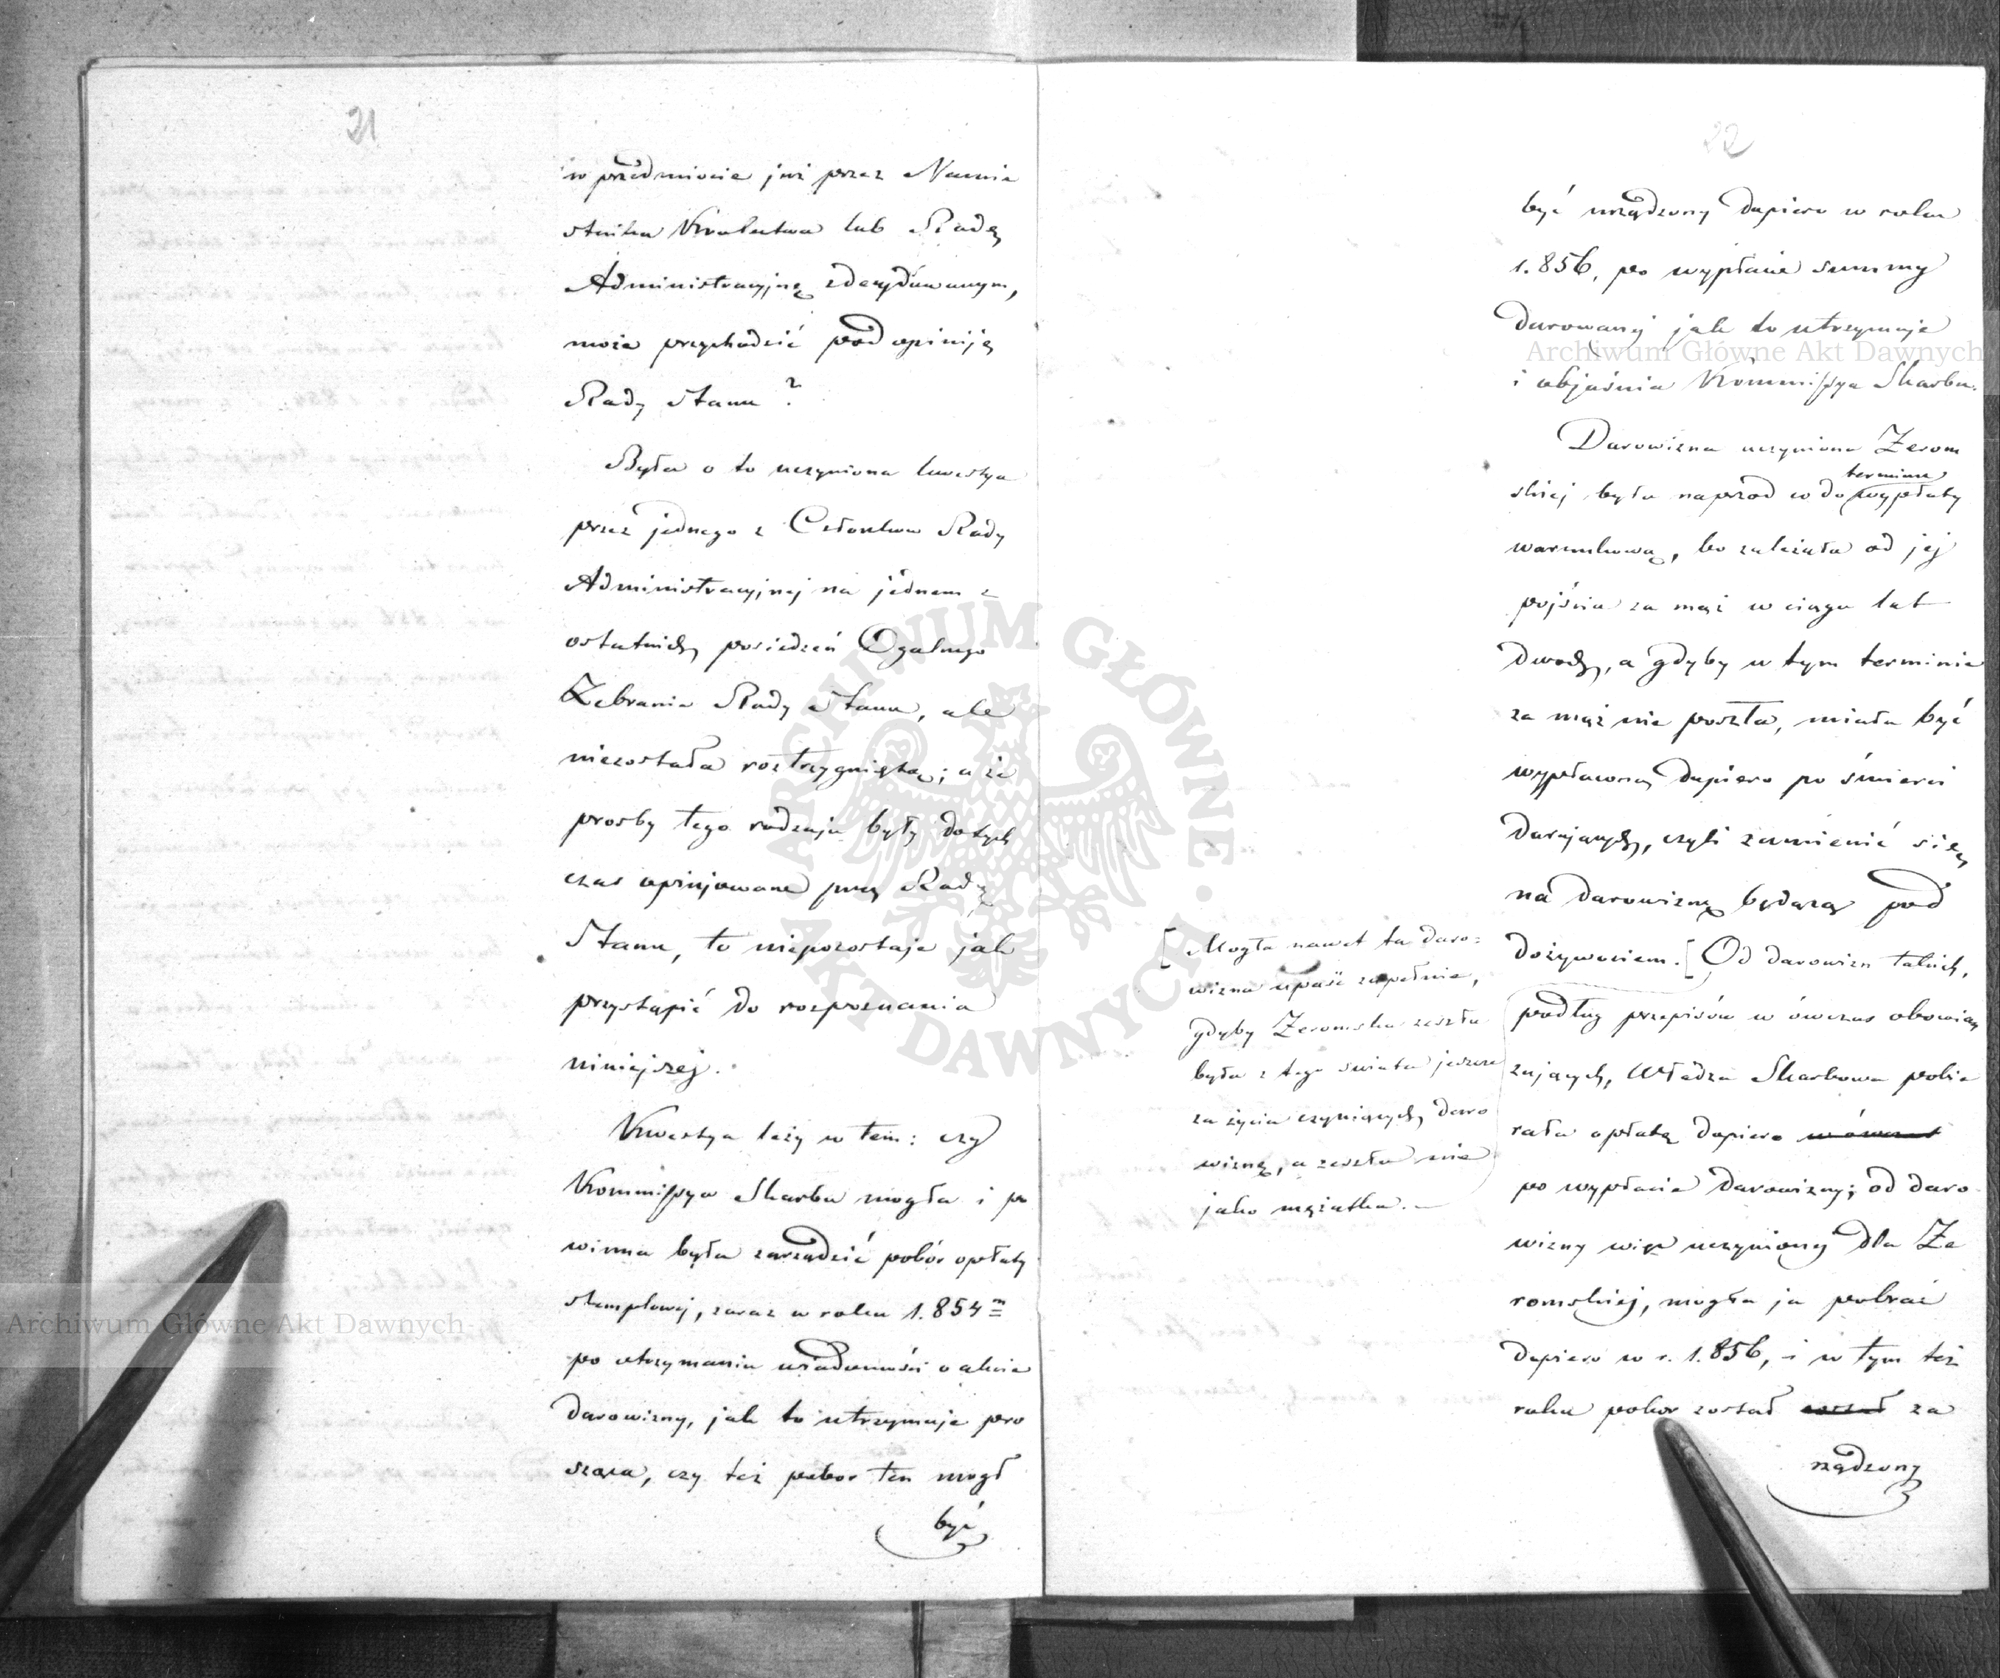 21
w przedmiocie już przez Namie
stnika Królestwa lub Radę
Administracyjną zdecydowanym,
może przychodzić pod opinję
Rady Stanu?
Była o to uczyniona kwestya
przez jednego z Członków Rady
Administracyjnej na jednem z
ostatnich posiedzeń Ogólnego
Zebrania Rady Stanu, ale
niezostała roztrzygniętą; a że
prośby tego rodzaju były dotych
czas opinjowane przez Radę
Stanu, to niepozostaje jak
przystąpić do rozpoznania
niniejszej.
Kwestya leży w tem: czy
Kommissya Skarbu mogła i po
winna była zarządzić pobór opłaty
stemplowej, zaraz w roku 1.854m
po otrzymaniu wiadomości o akcie
darowizny, jak to utrzymuje pro
sząca, czy też pobór ten mógł
być
22
być urządzony dopiero w roku
1.856, po wypłacie summy
darowanej jak to utrzymuje
i objaśnia Kommissya Skarbu.
Darowizna uczyniona Żerom
terminu
skiej była naprzód co do wypłaty
warunkową, bo zależała od jej
pojścia za mąż w ciągu lat
dwóch, a gdyby w tym terminie
za mąż nie poszła, miała być
wypłaconą dopiero po śmierci
darujących, czyli zamienić się
na darowiznę będącą pod
dożywociem. [Od darowizn takich,
podług przepisów w ówczas obowią
zujących, Władza Skarbowa pobie
rała opłatę dopiero wówczas
po wypłacie darowizny; od daro
wizny więc uczynionej dla Że
romskiej, mogła ja pobrać
dopiero w r. 1.856, i w tym też
roku pobór został został za
rządzony
[Mogła nawet ta daro=
wizna upaść zupełnie,
gdyby Żeromska zeszła
była z tego świata jeszcze
za życia czyniących daro
wiznę, a zeszła nie
jako mężatka.—
Archiwum Główne Akt Dawnych
Archiwum Główne Akt Dawnych
ARCHIWUM GŁÓWNE · AKT DAWNYCH ·